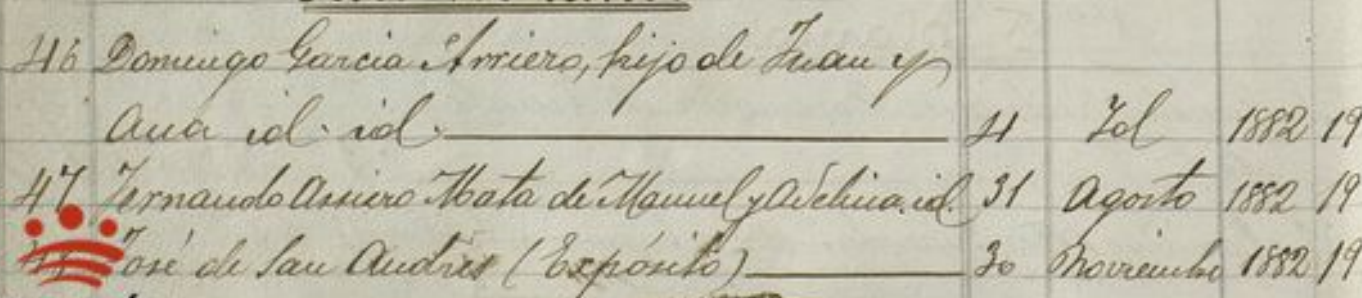 46 Domingo Garcia Arriero, hijo de Juan y
Ana id. id. 4 Id 1882 19
47 Fernando Arriero Mata de Manuel y Avelina. id. 31 Agosto 1882 19
José de San Andrés (Expósito) 30 Noviembre 1882 19